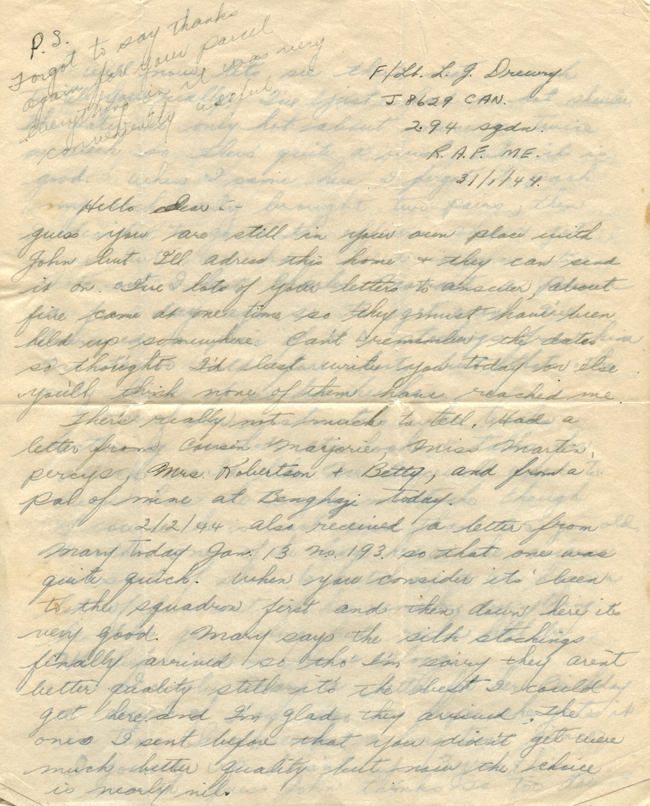 P.S.
Forgot to say thanks
again for your parcel
Everything in it was very
useful.
F/Lt. L. J. Drewry
J8629 CAN.
294 sqdn.
R.A.F. M.E.
31/1/44.
Hello Dear:-
guess you are still in your own place with
John but I'll adress this home + they can send
it on. I've lots of your letters to answer, about
five came at one time so they must have been
held up somewhere. Can't remember the dates
so thought I'd best write you today or else
you'll think none of them have reached me.
There's really not much to tell. Had a
letter from Cousin Marjorie, Miss Martin,
percys, Mrs. Robertson + Betty, and from a
pal of mine at Benghazi today.
2/2/44 Also received a letter from
Mary today Jan. 13 No. 193. so that one was
quite quick. When you consider it's been
to the squadron first and then down here its
very good. Mary says the silk stockings
finally arrived so tho' I'm sorry they aren't
better quality still it's the best I could
get here and I'm glad they arrived. The
ones I sent before that you didn't get were
much better quality but now the choice
is nearly nil.